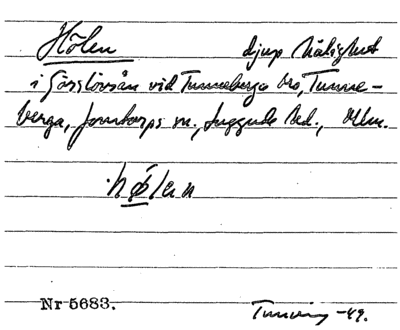 Hölen djup hålighet
i Görslövsån vid Tunneberga bro, Tunne-
berga, Jonstorps sn., Luggude hd., Mlm.
hølen
Nr 5683.
-49.